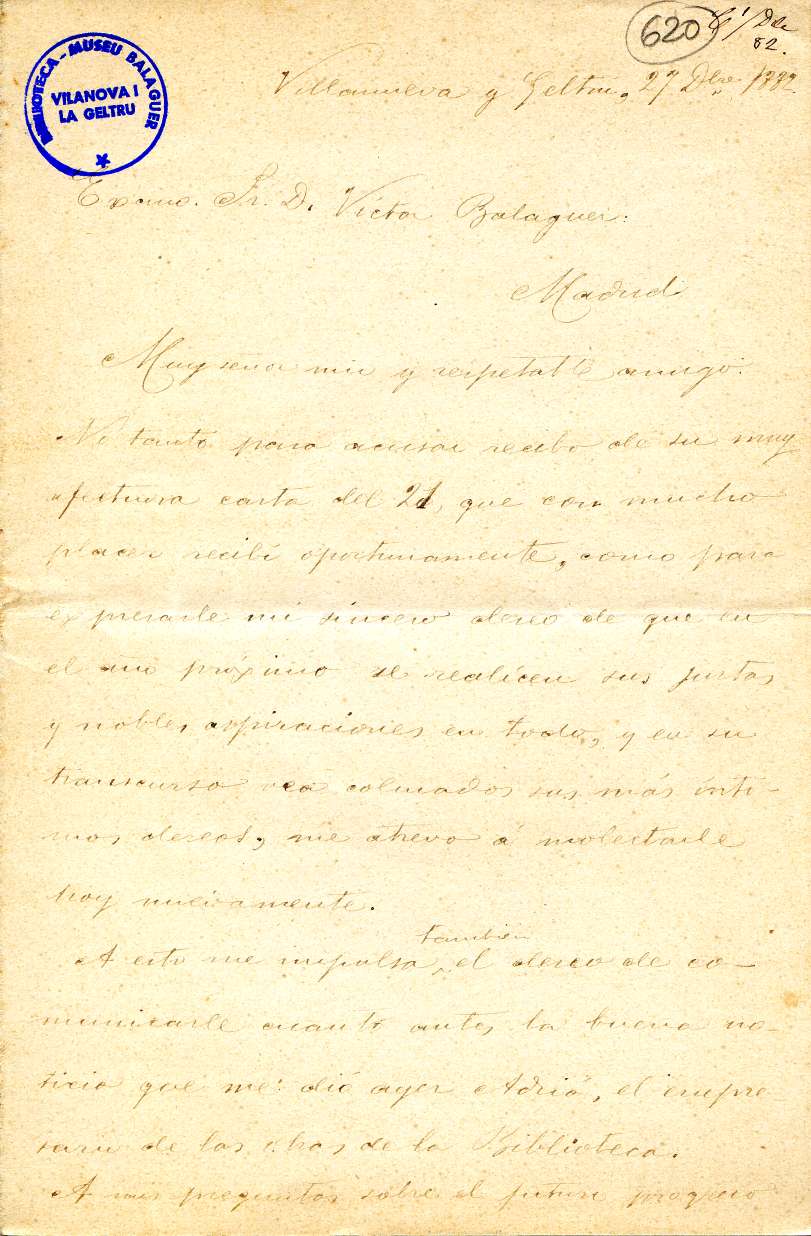 620
Dbre
82.
BIBLIOTECA - MUSEU BALAGUER
VILANOVA I
LA GELTRU
Villanueva y Geltrú, 27 Dbre 1882.
Excmo. Sr. D. Víctor Balaguer.
Madrid
Muy señor mio y respetable amigo:
No tanto para acusar recibo de su muy
afectuosa carta del 21, que con mucho
placer recibí oportunamente, como para
expresarle mi sincero deseo de que en
el año próximo se realicen sus justas
y nobles aspiraciones en todo, y en su
transcurso vea colmados sus más ínti-
mos deseos, me atrevo á molestarle
hoy nuevamente.
A esto me impulsa también el deseo de co-
municarle cuanto antes la buena no-
ticia que me dió ayer Adriá, el empre-
sario de las obras de la Biblioteca.
A mis preguntas sobre el futuro progreso